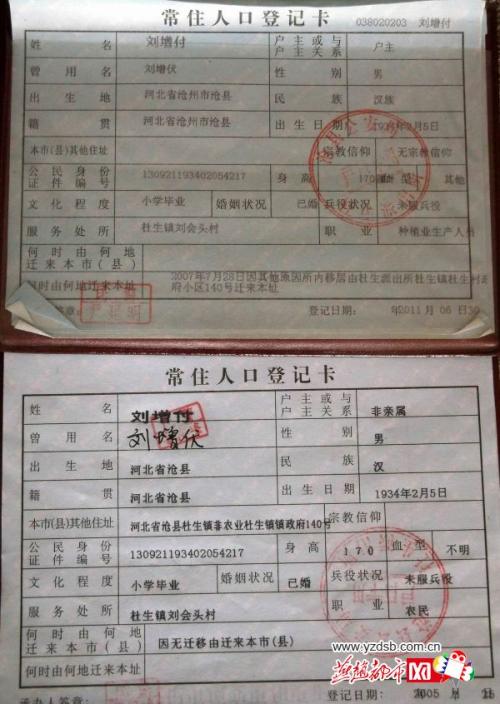 常住人口登记卡
038020203 刘增付
姓名 刘增付 户主或与户主关系 户主
曾用名 刘增伏 性别 男
出生地 河北省沧州市沧县 民族 汉族
籍贯 河北省沧州市沧县 出生日期 1934年2月5日
本市(县)其他住址 宗教信仰 无宗教信仰
公民身份证件编号 130921193402054217 身高 170 血型 其他
文化程度 小学毕业 婚姻状况 已婚 兵役状况 未服兵役
服务处所 杜生镇刘会头村 职业 种植业生产人员
何时由何地迁来本市(县)
何时由何地迁来本址 2007年7月28日因其他原因所内移居由杜生派出所杜生镇杜生村
府小区140号迁来本址
登记日期: 2011 06 30
常住人口登记卡
姓名 刘增付 户主或与户主关系 非亲属
曾用名 刘增伏 性别 男
出生地 河北省沧县 民族 汉
籍贯 河北省沧县 出生日期 1934年2月5日
本市(县)其他住址 河北省沧县杜生镇非农业杜生镇镇政府140号 宗教信仰
公民身份证件编号 130921193402054217 身高 170 血型 不明
文化程度 小学毕业 婚姻状况 已婚 兵役状况 未服兵役
服务处所 杜生镇刘会头村 职业 农民
何时由何地迁来本市(县) 因无迁移由迁来本市(县)
何时由何地迁来本址
承办人签章: 登记日期: 2005 年 月 日
www.yzdsb.com.cn
燕赵都市网